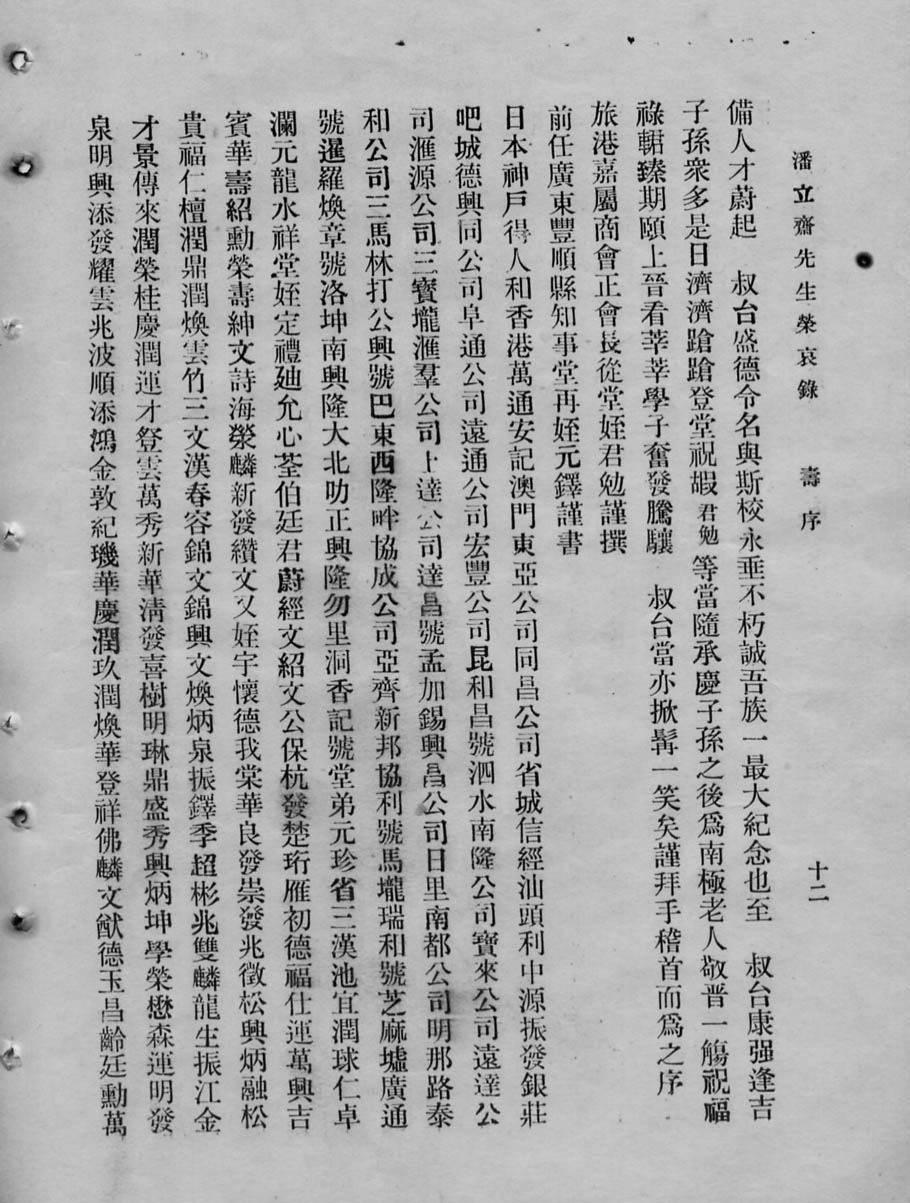 潘立齋先生榮哀錄 壽序 十二
備人才蔚起 叔台盛德令名與斯校永垂不朽誠吾族一最大紀念也至 叔台康强逢吉
子孫衆多是日濟濟蹌蹌登堂祝嘏君勉等當隨承慶子孫之後爲南極老人敬晋一觴祝福
祿駢臻期頤上晉看莘莘學子奮發騰驤 叔台當亦掀髯一笑矣謹拜手稽首而爲之序
旅港嘉屬商會正會長從堂姪君勉謹撰
前任廣東豐順縣知事堂再姪元鐸謹書
日本神戶得人和香港萬通安記澳門東亞公司同昌公司省城信經汕頭利中源振發銀莊
吧城德興同公司阜通公司遠通公司宏豐公司昆和昌號泗水南隆公司寶來公司遠達公
司滙源公司三寶壠滙羣公司上達公司達昌號孟加錫興昌公司日里南都公司明那路泰
和公司三馬林打公興號巴東西隆畔協成公司亞齊新邦協利號馬壠瑞和號芝麻墟廣通
號暹羅煥章號洛坤南興隆大北叻正興隆勿里洞香記號堂弟元珍省三漢池宜潤球仁卓
瀾元龍水祥堂姪定禮廸允心荃伯廷君蔚經文紹文公保杭發楚珩雁初德福仕連萬興吉
賓華壽紹勳榮壽紳文詩海榮麟新發纘文又姪宇懷德我棠華良發崇發兆徵松興炳融松
貴福仁檀潤鼎潤煥雲竹三文漢春容錦文錦興文煥炳泉振鐸季超彬兆雙麟龍生振江金
才景傳來潤榮桂慶潤運才發雲萬秀新華淸發喜樹明琳鼎盛秀興炳坤學榮懋森運明發
泉明興添發耀雲兆波順添鴻金敦紀璣華慶潤玖潤煥華登祥佛麟文猷德玉昌齡廷勳萬